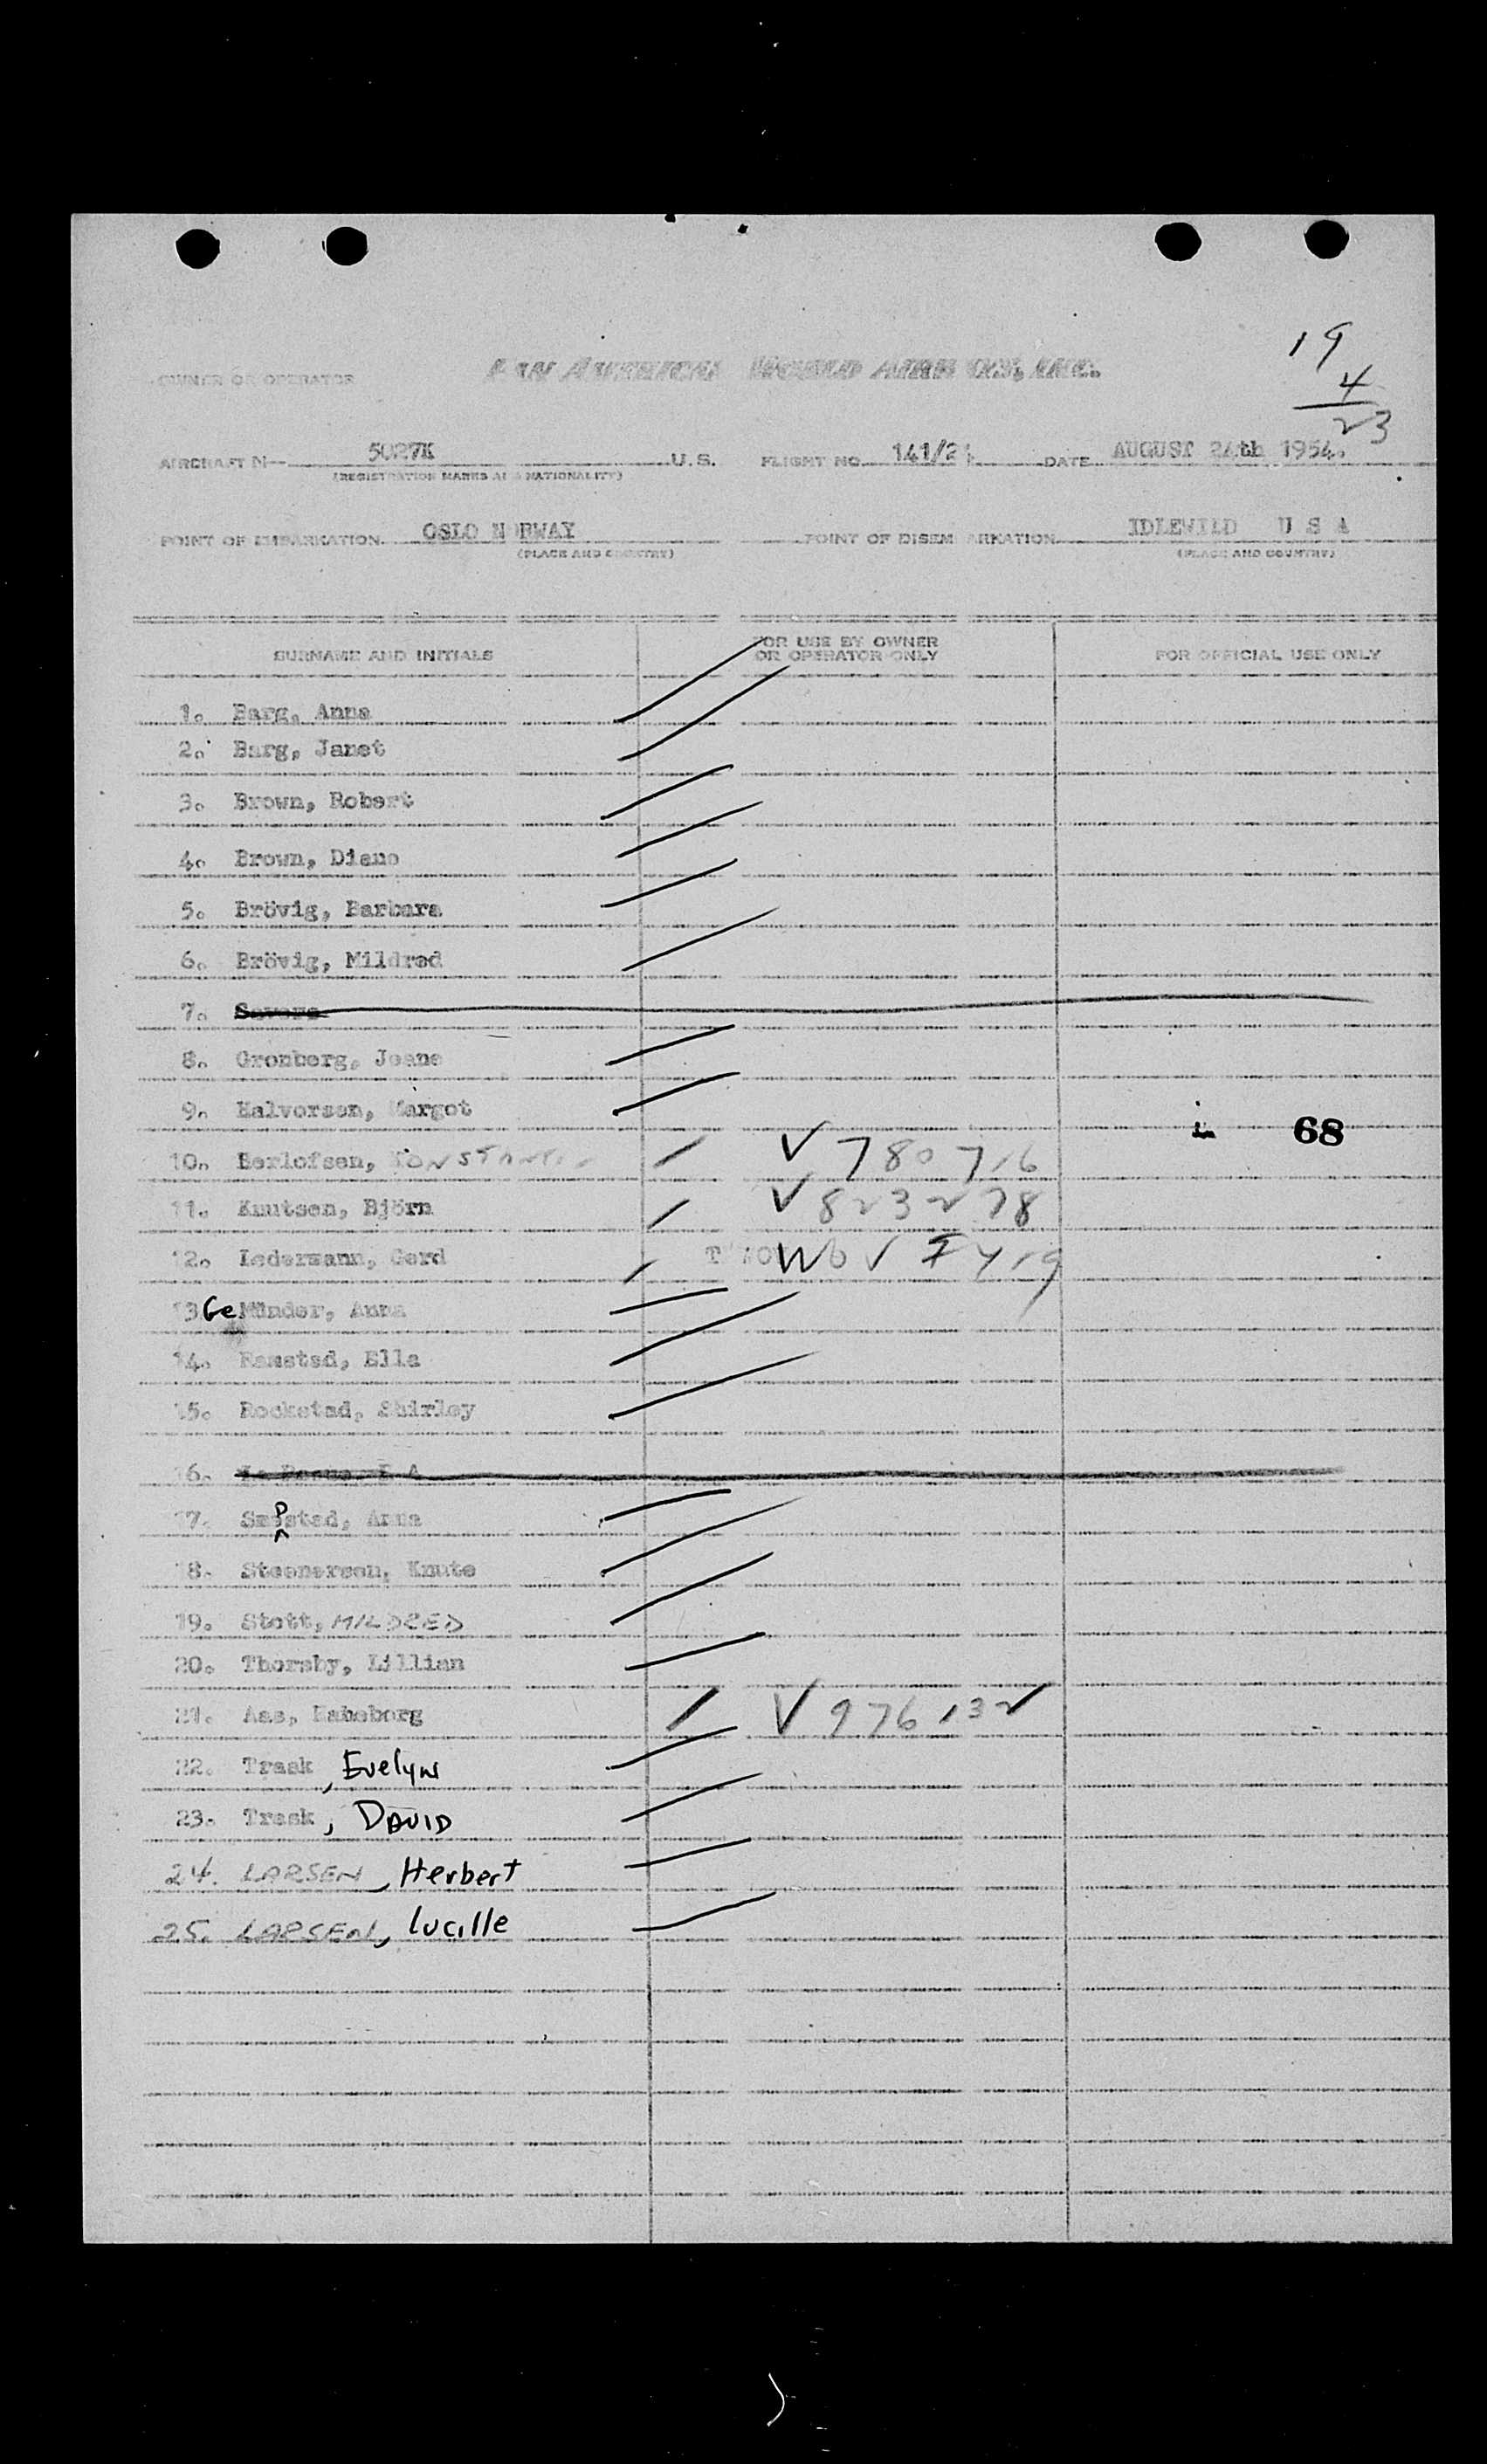 19
4
23
OWNER OR OPERATOR PAN AMERICAN WORLD AIRWAYS, INC.
AIRCRAFT N— 5027K U.S. FLIGHT NO. 141/24 DATE AUGUST 24th 1954.
(REGISTRATION MARKS AND NATIONALITY)
POINT OF EMBARKATION OSLO NORWAY POINT OF DISEMBARKATION IDLEWILD U S A
(PLACE AND COUNTRY) (PLACE AND COUNTRY)
SURNAME AND INITIALS FOR USE BY OWNER OR OPERATOR ONLY FOR OFFICIAL USE ONLY
1. Barg, Anna
2. Barg, Janet
3. Brown, Robert
4. Brown, Diane
5. Brövig, Barbara
6. Brövig, Mildred
7.
8. Gronberg, Joane
9. Halvorsen, Margot
68
10. Herlofsen, KONSTANTIN V 780716
11. Knutsen, Björn V 823278
12. Ledermann, Gerd
13. GeMünder, Anna
14. Ramstad, Ella
15. Rockstad, Shirley
16.
17. Anna
18. Steenersen, Knute
19. Stott, MILDRED
20. Thorsby, Lillian
21. Aas, V 976132
22. Trask, Evelyn
23. Trask, DAVID
24. LARSEN, Herbert
25. LARSEN, Lucille